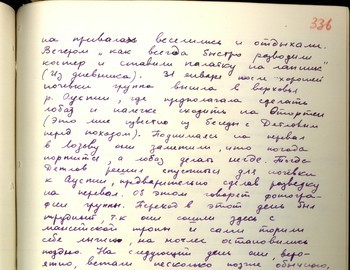 336
на привалах веселились и отдыхали.
Вечером "как всегда быстро разводили
костер и ставили палатку на лапник"
(Из дневника). 31 января после хорошей
ночевки группа вышла в верховья
р. Ауспии, где предполагала сделать
лобаз и налегке сходить на Отортен
(Это мне известно из беседы с Дятловым
перед походом). Поднимаясь на перевал
в Лозьву они заметили, что погода
портится, а лобаз делать негде. Тогда
Дятлов решил спуститься для ночевки
к Ауспии, предварительно сделав разведку
на перевал. Об этом говорят фотогра-
фии группы. Переход в этот день был
трудный, т.к. они сошли здесь с
мансийской тропы и сами торили
себе лыжню, на ночлег остановились
поздно. На следующий день они, веро-
ятно, встали несколько позже обычного,